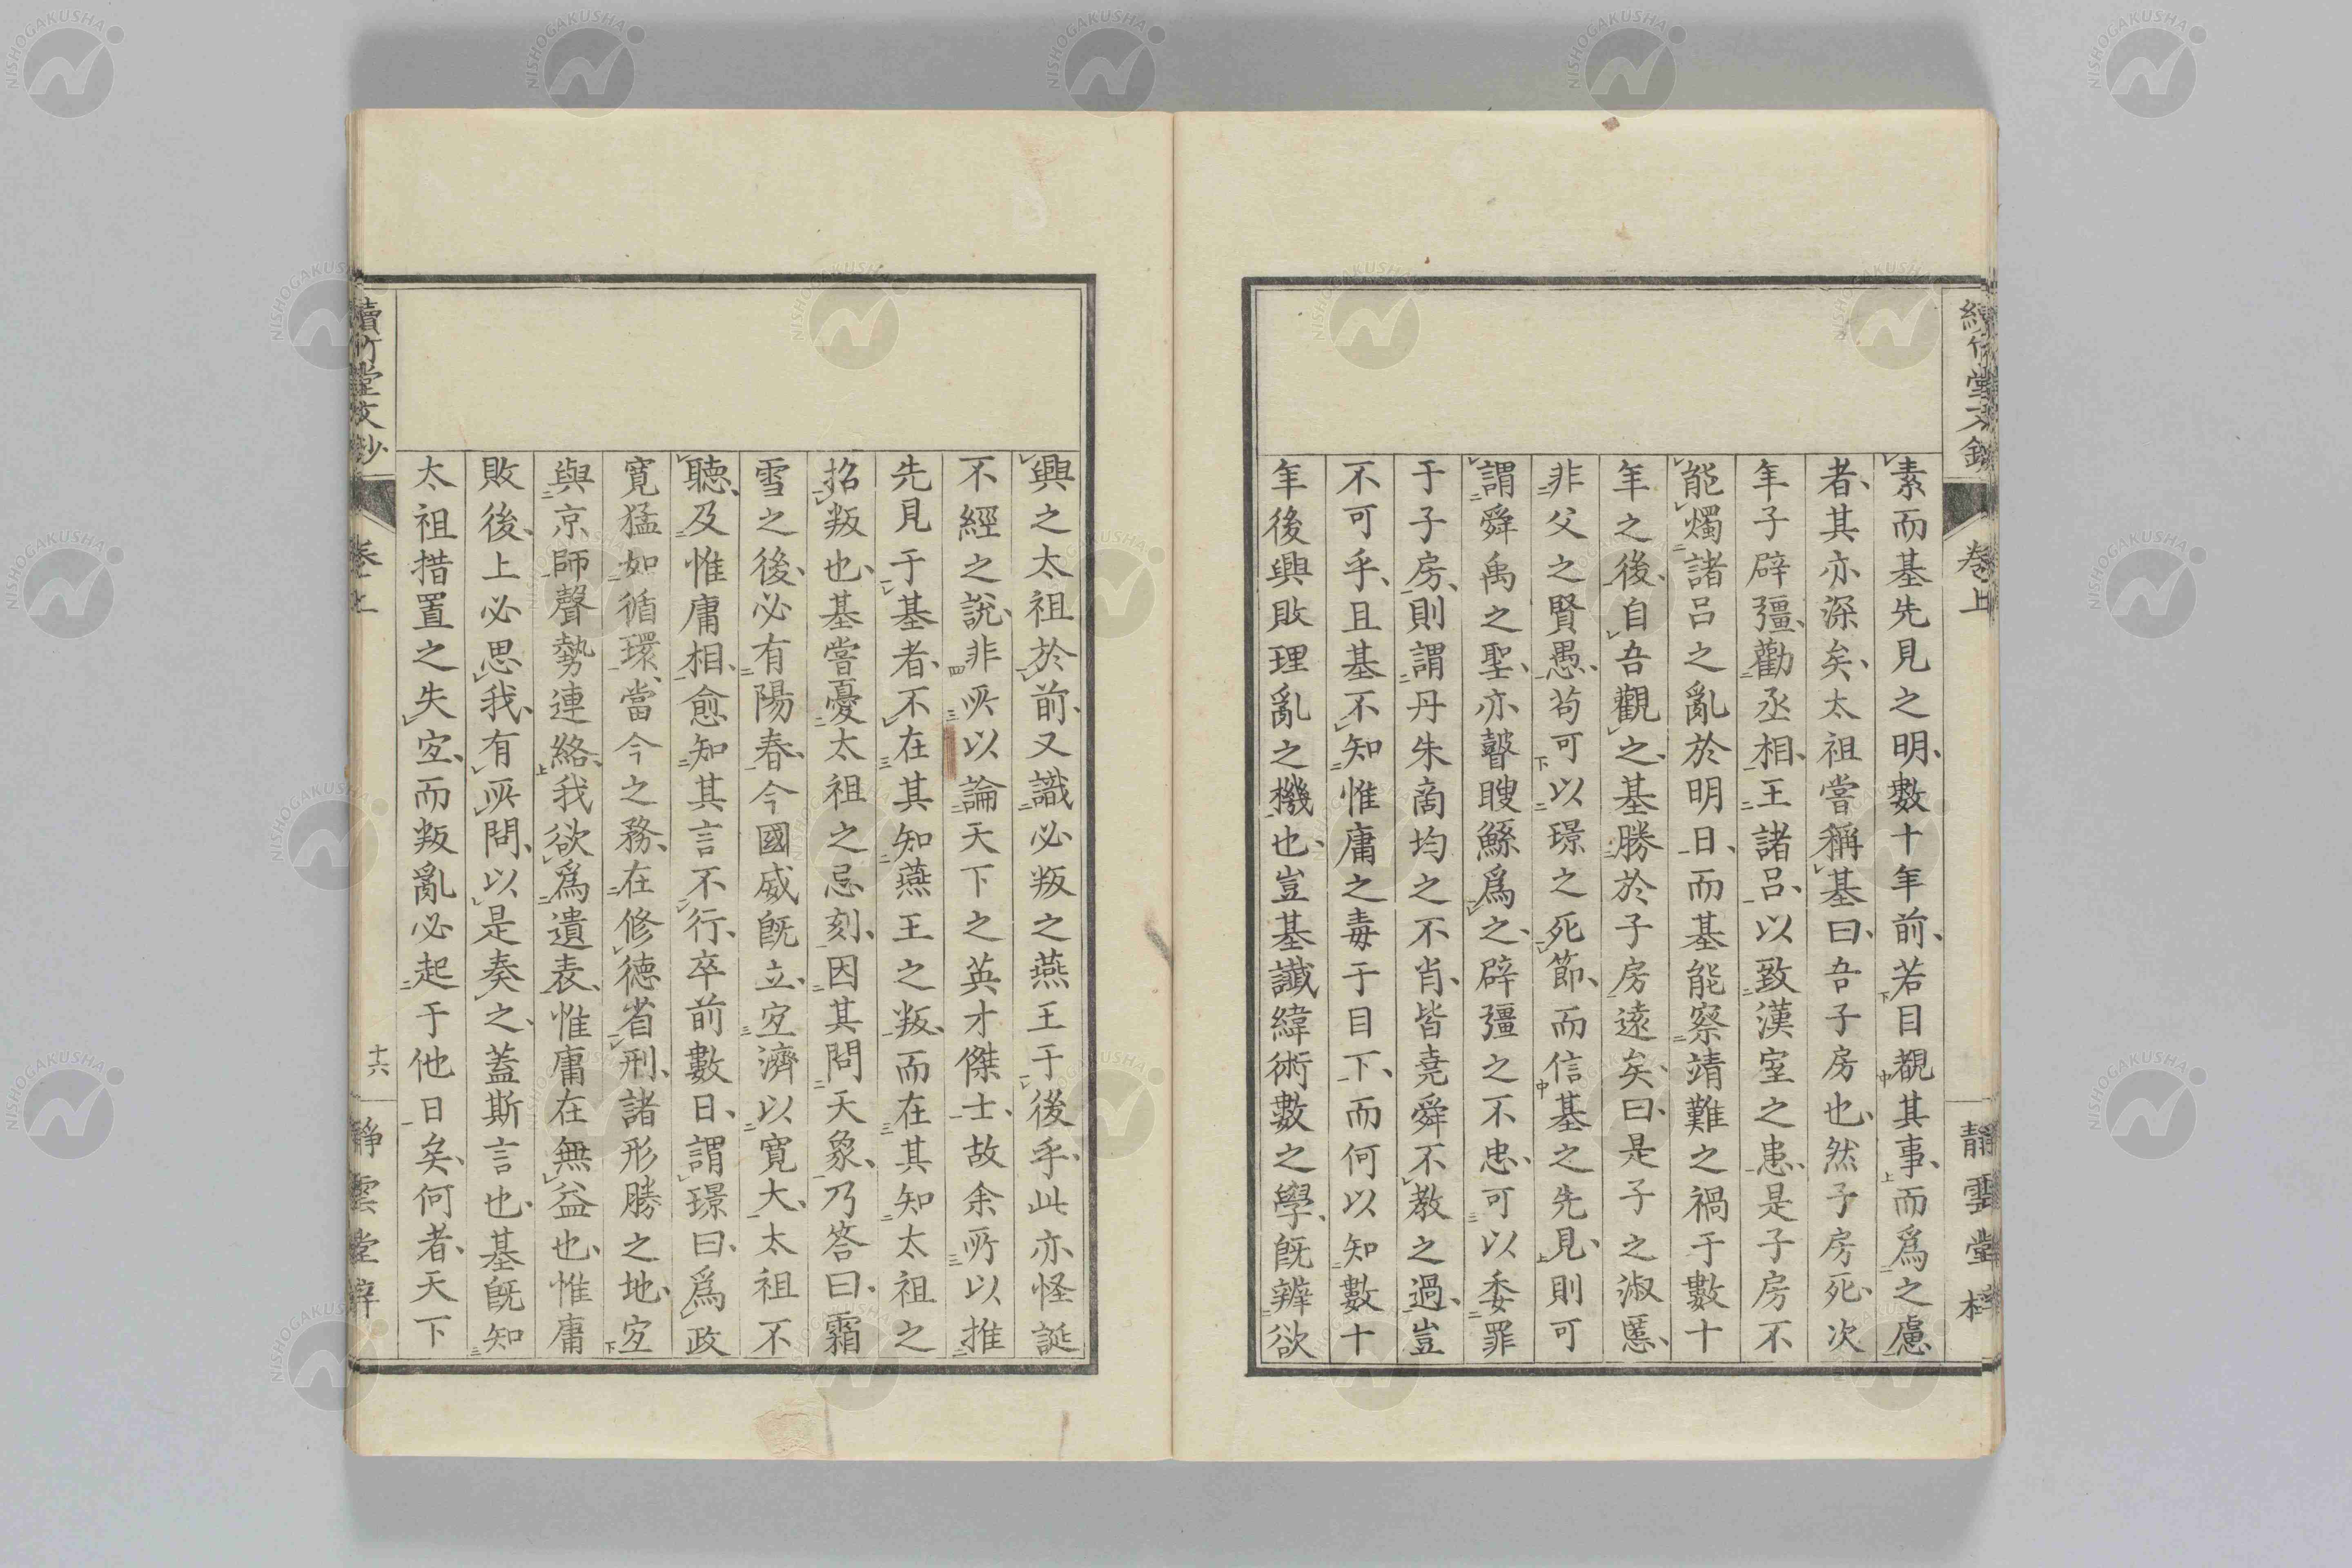 素而基先見之明、數十年前、若目覩其事、而爲之慮
者、其亦深矣、太祖嘗稱基曰、吾子房也、然子房死、次
年子辟彊、勸丞相、王諸呂、以致漢室之患、是子房不
能燭諸呂之亂於明日、而基能察靖難之禍于數十
年之後、自吾觀之、基勝於子房遠矣、曰、是子之淑慝、
非父之賢愚、苟可以璟之死節、而信基之先見、則可
謂舜禹之聖、亦瞽瞍鯀爲之、辟彊之不忠、可以委罪
于子房、則謂丹朱商均之不肖、皆堯舜不教之過、豈
不可乎、且基不知惟庸之毒于目下、而何以知數十
年後興敗理亂之機也、豈基讖緯術數之學、旣辨欲
興之太祖於前、又識必叛之燕王于後乎、此亦怪誕
不經之說、非所以論天下之英才傑士、故余所以推
先見于基者、不在其知燕王之叛、而在其知太祖之
招叛也、基嘗憂太祖之忌刻、因其問天象、乃答曰、霜
雪之後、必有陽春、今國威旣立、宜濟以寬大、太祖不
聽、及惟庸相、愈知其言不行、卒前數日、謂璟曰、爲政
寬猛如循環、當今之務、在修德省刑、諸形勝之地、宜
與京師聲勢連絡、我欲爲遺表、惟庸在無益也、惟庸
敗後、上必思我、有所問、以是奏之、蓋斯言也、基旣知
太祖措置之失宜、而叛亂必起于他日矣、何者、天下
續竹堂文鈔
卷上
十六
靜雲堂梓
NISHOGAKUSHA